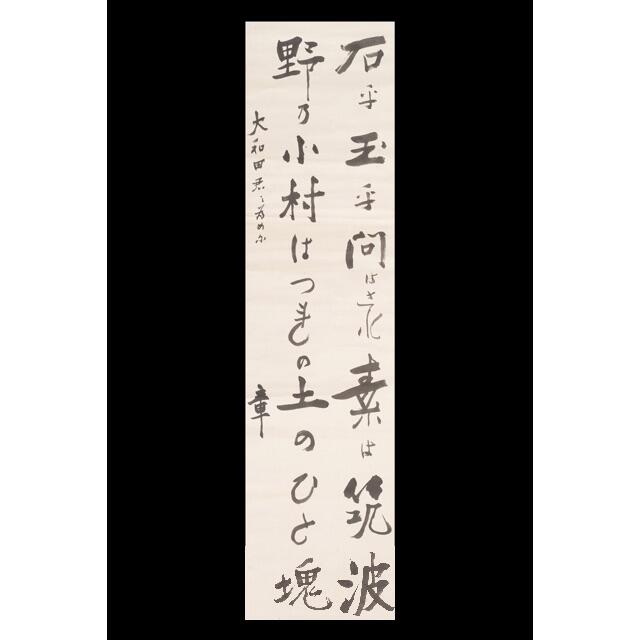 石乎玉乎問はされ素は筑波
野乃小村はつれの土のひと塊
大和田君之為め尓
章